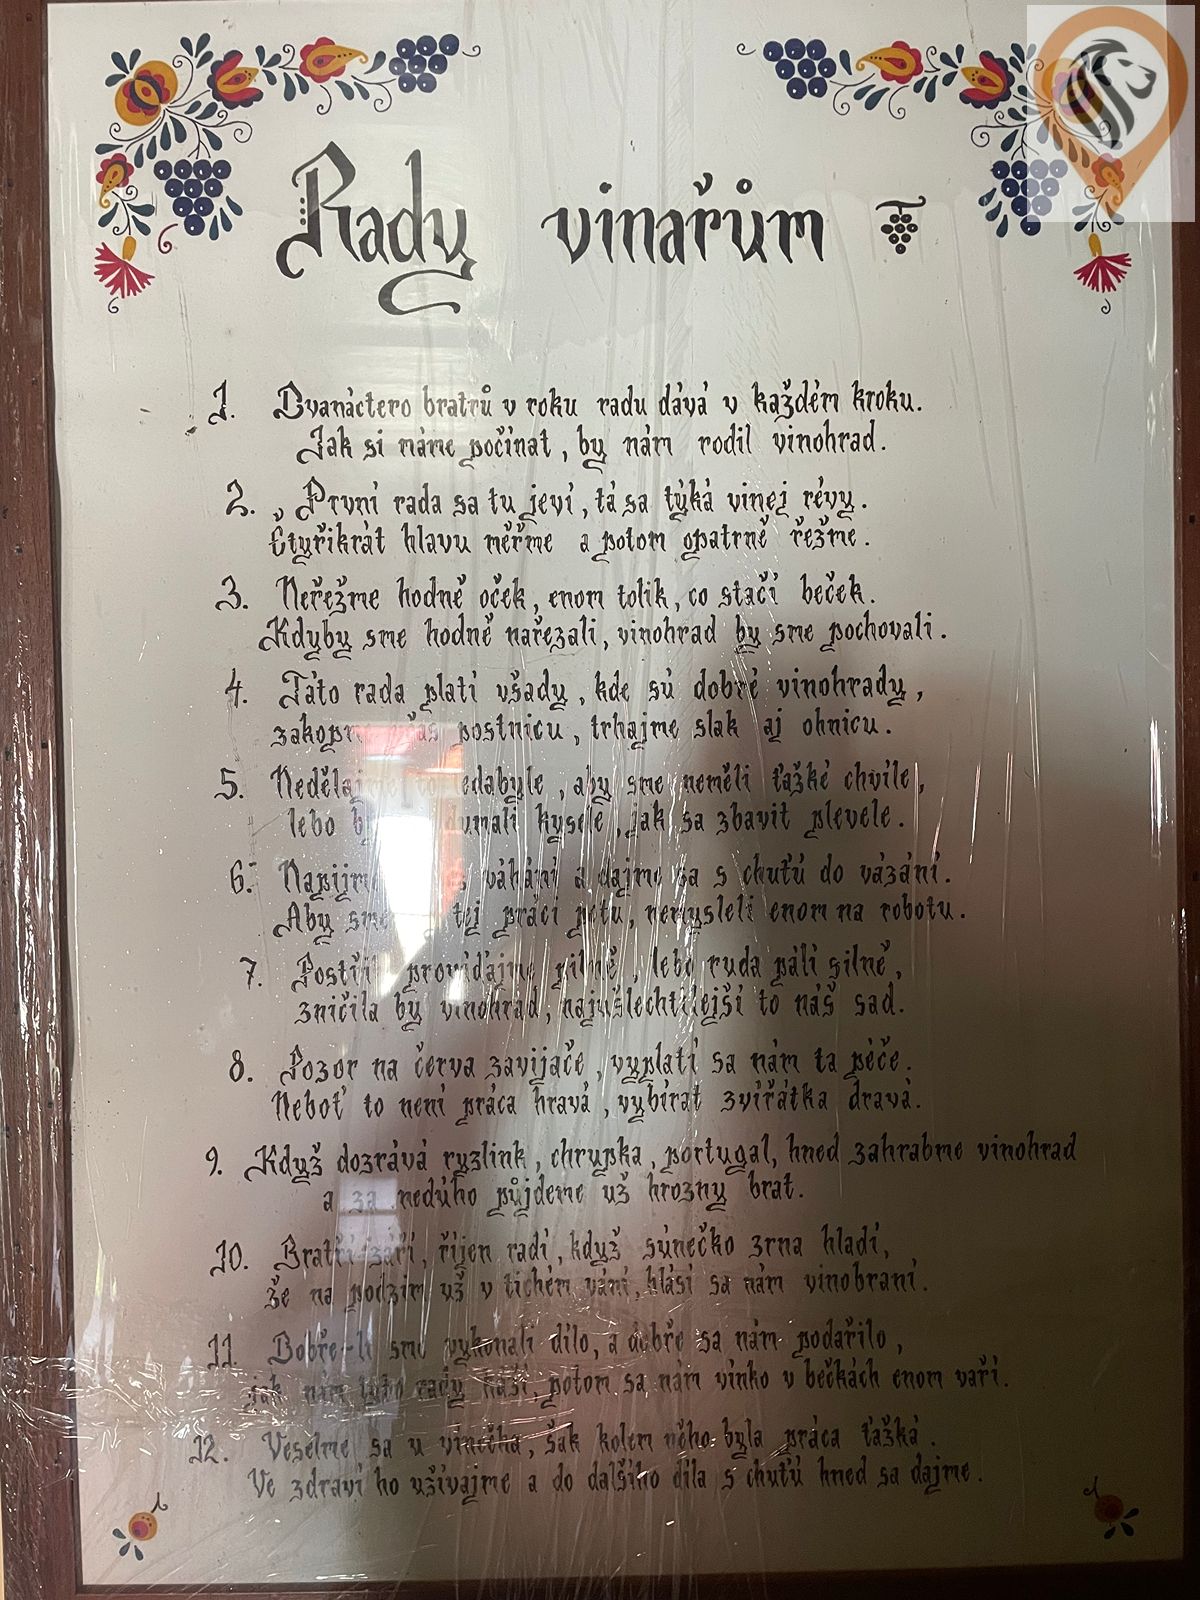 Rady vinařům
1. Dvanáctero bratrů v roku radu dává v každém kroku.
Jak si máme počínat, by nám rodil vinohrad.
2. První rada sa tu jeví, tá sa týká vinej révy.
Čtyřikrát hlavu měřme a potom opatrně řežme.
3. Neřežme hodně oček, enom tolik, co stačí beček.
Kdyby sme hodně nařezali, vinohrad by sme pochovali.
4. Táto rada platí všady, kde sú dobré vinohrady,
včas postnicu, trhajme slak aj ohnicu.
5. aby sme neměli ťažké chvíle,
lebo dumali kysele, jak sa zbavit plevele.
6. váhání a dajme sa s chuťú do vázání.
Aby sme tej práci potu, nemysleli enom na robotu.
7. pilně, lebo ruda pálí silně,
zničila by vinohrad, najušlechtilejší to náš sad.
8. Pozor na červa zavijače, vyplatí sa nám ta péče.
Neboť to není práca hravá, vybírat zvířátka dravá.
9. Když dozrává ryzlink, chrupka, portugal, hned zahrabme vinohrad
a za nedúho půjdeme už hrozny brat.
10. Bratři září, říjen radí, když súnečko zrna hladí,
že na podzim už v tichém vání, hlásí sa nám vinobraní.
11. Dobře-li sme vykonali dílo, a dobře sa nám podařilo,
jak nám tyto rady káží, potom sa nám vínko v bečkách enom vaří.
12. Veselme sa u vínečka, šak kolem něho byla práca ťažká.
Ve zdraví ho užívajme a do dalšího díla s chuťú hned sa dajme.